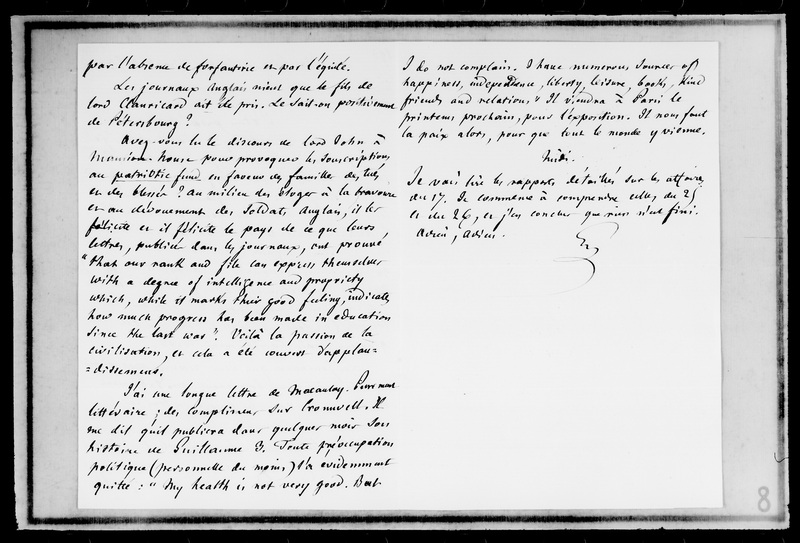 par l'absence de forfanterie et par l'égide.
Les journaux anglais nient que le fils de
lord Clanricard ait été pris. Le sait-on positivement
de Pétersbourg ?
Avez-vous lu le discours de lord John à
Mansion-house pour provoquer les souscriptions
au patriotic fund en faveur des familles des tués
et des blessés ? Au milieu des éloges à la bravoure
et au dévouement des soldats anglais, il les
félicite et il félicite le pays de ce que leurs
lettres, publiées dans les journaux, ont prouvé
"that our rank and file can express themselves
with a degree of intelligence and propriety
which, while it marks their good feeling, indicates
how much progress has been made in education
since the last war". Voilà la passion de la
civilisation, et cela a été couvert d'applau=
=dissemens.
J'ai une longue lettre de Macaulay. Purement
littéraire ; des complimens sur Cromwell. Il
me dit qu'il publiera dans quelques mois son
histoire de Guillaume 3. Toute préoccupation
politique (personnelle du moins) l'a évidemment
quitté : "My health is not very good. But
I do not complain. I have numerous sources of
happiness, independence, liberty, leisure, books, kind
friends and relations". Il viendra à Paris le
printems prochain, pour l'exposition. Il nous faut
la paix alors, pour que tout le monde y vienne.
Midi.
Je vais lire les rapports détaillés sur les affaires
du 17. Je commence à comprendre celles du 25
et du 26, et j'en conclus que rien n'est fini.
Adieu, adieu.
G
8